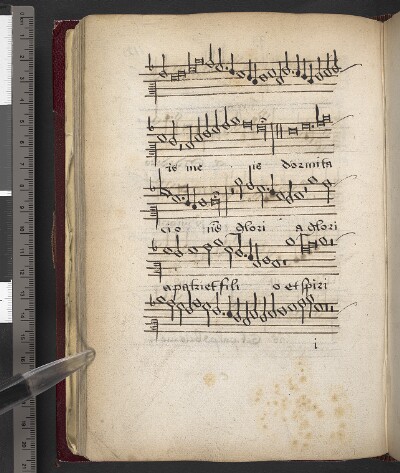 is me is dormita
cio nis glori a glori
a patri et fili o et spiri
i